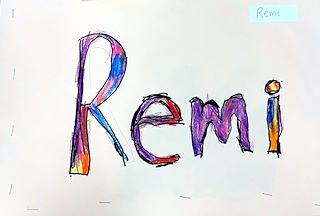 Remi
Remi